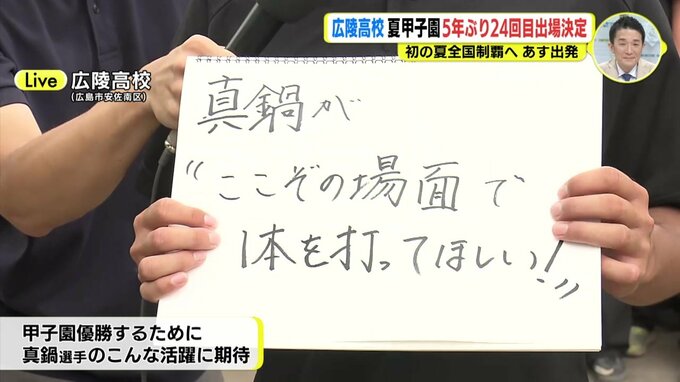 広陵高校 夏甲子園 5年ぶり24回目出場決定
初の夏全国制覇へ あす出発
Live 広陵高校
(広島市安佐南区)
真鍋が
“ここぞの場面で
1本を打ってほしい！”
甲子園優勝するために
真鍋選手のこんな活躍に期待